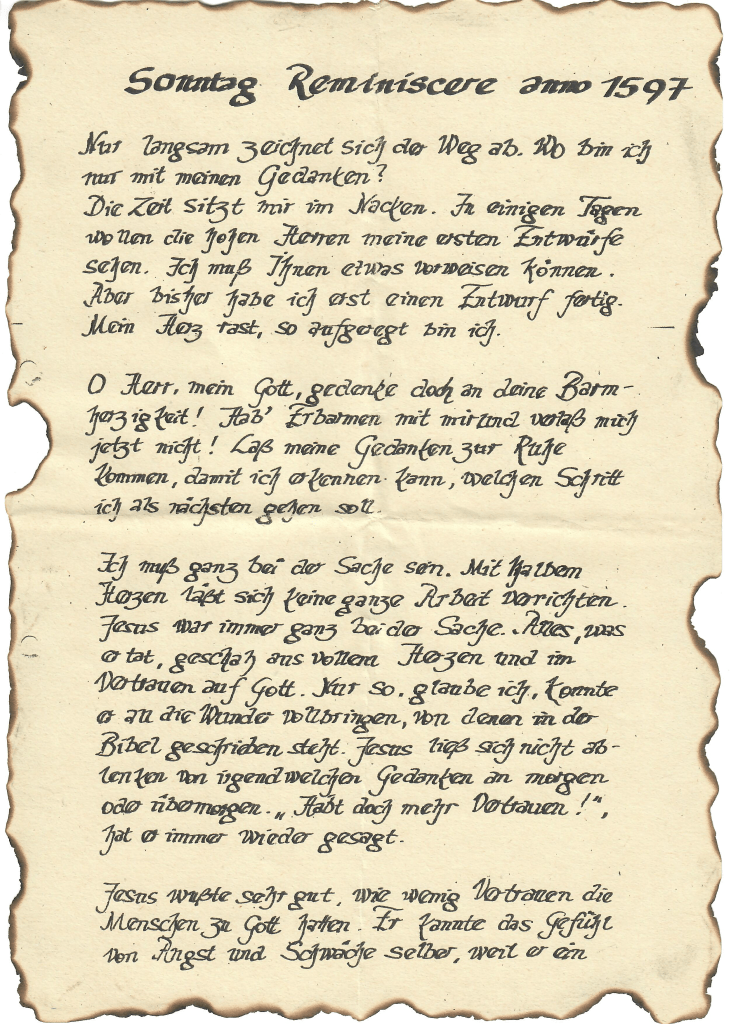 Sonntag Reminiscere anno 1597
Nur langsam zeichnet sich der Weg ab. Wo bin ich
nur mit meinen Gedanken?
Die Zeit sitzt mir im Nacken. In einigen Tagen
wollen die hohen Herren meine ersten Entwürfe
sehen. Ich muß Ihnen etwas vorweisen können.
Aber bisher habe ich erst einen Entwurf fertig.
Mein Herz rast, so aufgeregt bin ich.
O Herr, mein Gott, gedenke doch an deine Barm-
herzigkeit! Hab' Erbarmen mit mir und verlaß mich
jetzt nicht! Laß meine Gedanken zur Ruhe
kommen, damit ich erkennen kann, welchen Schritt
ich als nächsten gehen soll.
Ich muß ganz bei der Sache sein. Mit halbem
Herzen läßt sich keine ganze Arbeit verrichten.
Jesus war immer ganz bei der Sache. Alles, was
er tat, geschah aus vollem Herzen und im
Vertrauen auf Gott. Nur so, glaube ich, konnte
er all die Wunder vollbringen, von denen in der
Bibel geschrieben steht. Jesus ließ sich nicht ab-
lenken von irgendwelchen Gedanken an morgen
oder übermorgen. „Habt doch mehr Vertrauen!“,
hat er immer wieder gesagt.
Jesus wußte sehr gut, wie wenig Vertrauen die
Menschen zu Gott hatten. Er kannte das Gefühl
von Angst und Schwäche selber, weil er ein